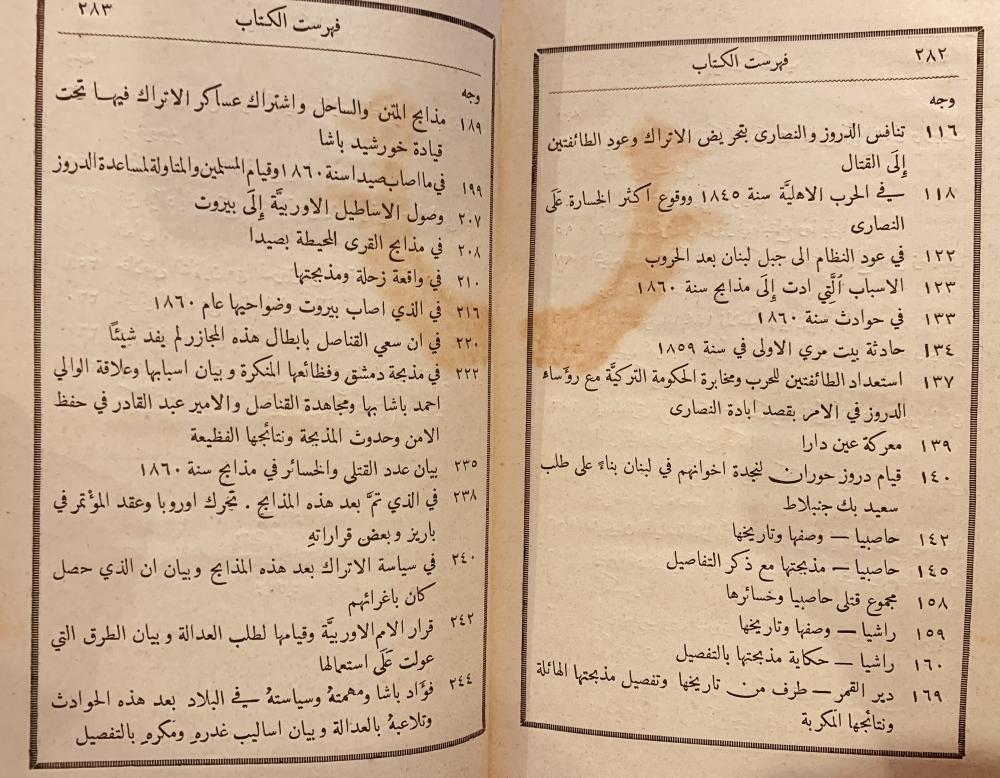 ٢٨٢ فهرست الكتاب
وجه
١١٦ تنافس الدروز والنصارى بتحريض الاتراك وعود الطائفتين
إِلَى القتال
١١٨ في الحرب الاهليَّة سنة ١٨٤٥ ووقوع اكثر الخسارة عَلَى
النصارى
١٢٢ في عود النظام الى جبل لبنان بعد الحروب
١٢٣ الاسباب الَّتِي ادت إِلَى مذابح سنة ١٨٦٠
١٣٣ في حوادث سنة ١٨٦٠
١٣٤ حادثة بيت مري الاولى في سنة ١٨٥٩
١٣٧ استعداد الطائفتين للحرب ومخابرة الحكومة التركيَّة مع رؤساء
الدروز في الامر بقصد ابادة النصارى
١٣٩ معركة عين دارا
١٤٠ قيام دروز حوران لنجدة اخوانهم في لبنان بناءً على طلب
سعيد بك جنبلاط
١٤٢ حاصبيا — وصفها وتاريخها
١٤٥ حاصبيا — مذبحتها مع ذكر التفاصيل
١٥٨ مجموع قتلى حاصبيا وخسائرها
١٥٩ راشيا — وصفها وتاريخها
١٦٠ راشيا — حكاية مذبحتها بالتفصيل
١٦٩ دير القمر — طرف من تاريخها وتفصيل مذبحتها الهائلة
ونتائجها المكربة
فهرست الكتاب ٢٨٣
وجه
١٨٩ مذابح المتن والساحل واشتراك عساكر الاتراك فيها تحت
قيادة خورشيد باشا
١٩٩ في ما اصاب صيدا سنة ١٨٦٠ وقيام المسلمين والمتاولة لمساعدة الدروز
٢٠٧ وصول الاساطيل الاوربيَّة إِلَى بيروت
٢٠٨ في مذابح القرى المحيطة بصيدا
٢١٠ في واقعة زحلة ومذبحتها
٢١٦ في الذي اصاب بيروت وضواحيها عام ١٨٦٠
٢٢٠ في ان سعي القناصل بابطال هذه المجازر لم يفد شيئًا
٢٢٢ في مذبحة دمشق وفظائعها المنكرة وبيان اسبابها وعلاقة الوالي
احمد باشا بها ومجاهدة القناصل والامير عبد القادر في حفظ
الامن وحدوث المذبحة ونتائجها الفظيعة
٢٣٥ بيان عدد القتلى والخسائر في مذابح سنة ١٨٦٠
٢٣٨ في الذي تمَّ بعد هذه المذابح . تحرك اوروبا وعقد المؤتمر في
باريز وبعض قراراتهِ
٢٤٠ في سياسة الاتراك بعد هذه المذابح وبيان ان الذي حصل
كان باغرائهم
٢٤٢ قرار الامم الاوربيَّة وقيامها لطلب العدالة وبيان الطرق التي
عولت عَلَى استعمالها
٢٤٤ فؤاد باشا ومهمتهُ وسياستهُ في البلاد بعد هذه الحوادث
وتلاعبهُ بالعدالة وبيان اساليب غدرهِ ومكرهِ بالتفصيل